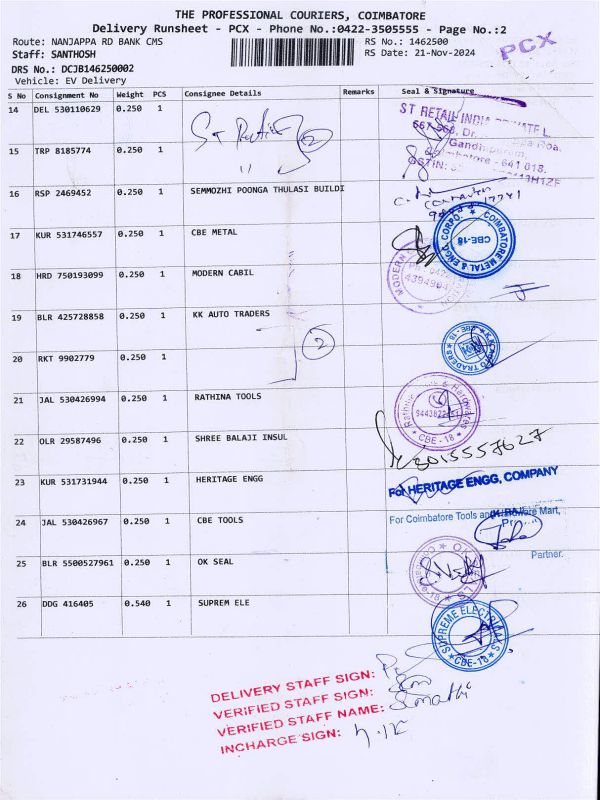 THE PROFESSIONAL COURIERS, COIMBATORE
Delivery Runsheet - PCX - Phone No.:0422-3505555 - Page No.:2
Route: NANJAPPA RD BANK CMS RS No.: 1462500
Staff: SANTHOSH RS Date: 21-Nov-2024
PCX
DRS No.: DCJB146250002
Vehicle: EV Delivery
S No Consignment No Weight PCS Consignee Details Remarks Seal & Signature
14 DEL 530110629 0.250 1
ST RETAIL INDIA PRIVATE L
Gandhipuram,
Coimbatore - 641 018.
15 TRP 8185774 0.250 1
16 RSP 2469452 0.250 1 SEMMOZHI POONGA THULASI BUILDI
17 KUR 531746557 0.250 1 CBE METAL
COIMBATORE METAL & ENGG CORPO
CBE-18
18 HRD 750193099 0.250 1 MODERN CABIL
MODERN
19 BLR 425728858 0.250 1 KK AUTO TRADERS
2
20 RKT 9902779 0.250 1
21 JAL 530426994 0.250 1 RATHINA TOOLS
CBE - 18
22 OLR 29587496 0.250 1 SHREE BALAJI INSUL
8015557627
23 KUR 531731944 0.250 1 HERITAGE ENGG
For HERITAGE ENGG, COMPANY
24 JAL 530426967 0.250 1 CBE TOOLS
For Coimbatore Tools and Hardware Mart,
Partner.
25 BLR 5500527961 0.250 1 OK SEAL
26 DDG 416405 0.540 1 SUPREM ELE
SUPREME ELECTRICALS
CBE-18
DELIVERY STAFF SIGN:
VERIFIED STAFF SIGN:
VERIFIED STAFF NAME: Sumathi
INCHARGE SIGN: